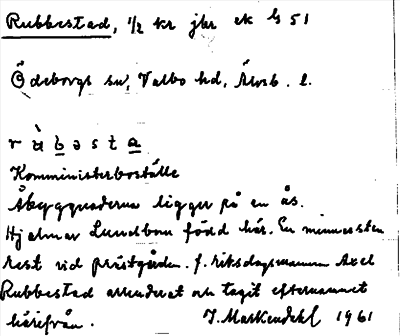 Rubbestad, 1/2 kr jbr ek G 51
Ödeborgs sn, Valbo hd, Älvsb. l.
r ù b ə s t a
Komministerboställe
Åbyggnaderna ligger på en ås.
Hjalmar Lundbom född här. En minnessten
rest vid prästgården. f. riksdagsmannen Axel
Rubbestad arrenderat och tagit efternamnet
härifrån. J. Markendahl 1961